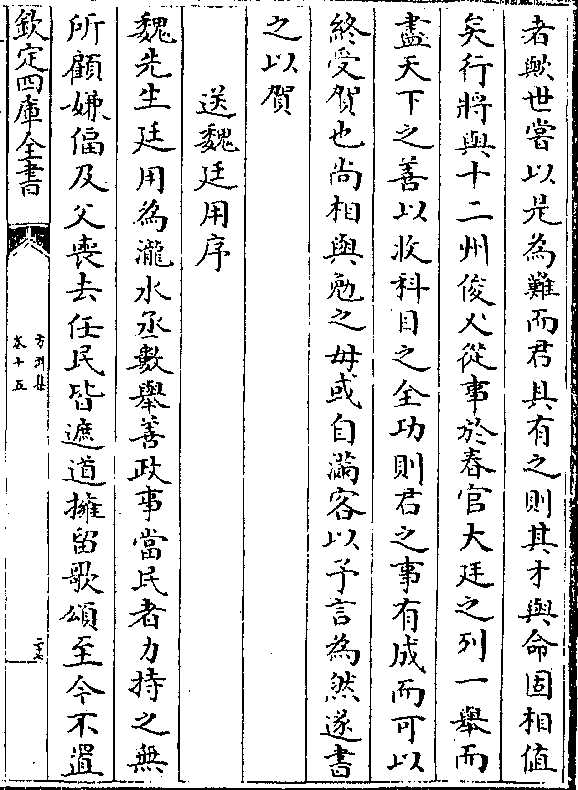 者歟世嘗以是為難而君具有之則其才與命固相值
矣行將與十二州俊乂從事於春官大廷之列一舉而
盡天下之善以收科目之全功則君之事有成而可以
終受賀也尚相與勉之毋或自滿客以予言為然遂書
之以賀
送魏廷用序
魏先生廷用為瀧水丞數舉善政事當民者力持之無
所顧嫌偪及父喪去任民皆遮道擁留歌頌至今不置
欽定四庫全書
卷十五